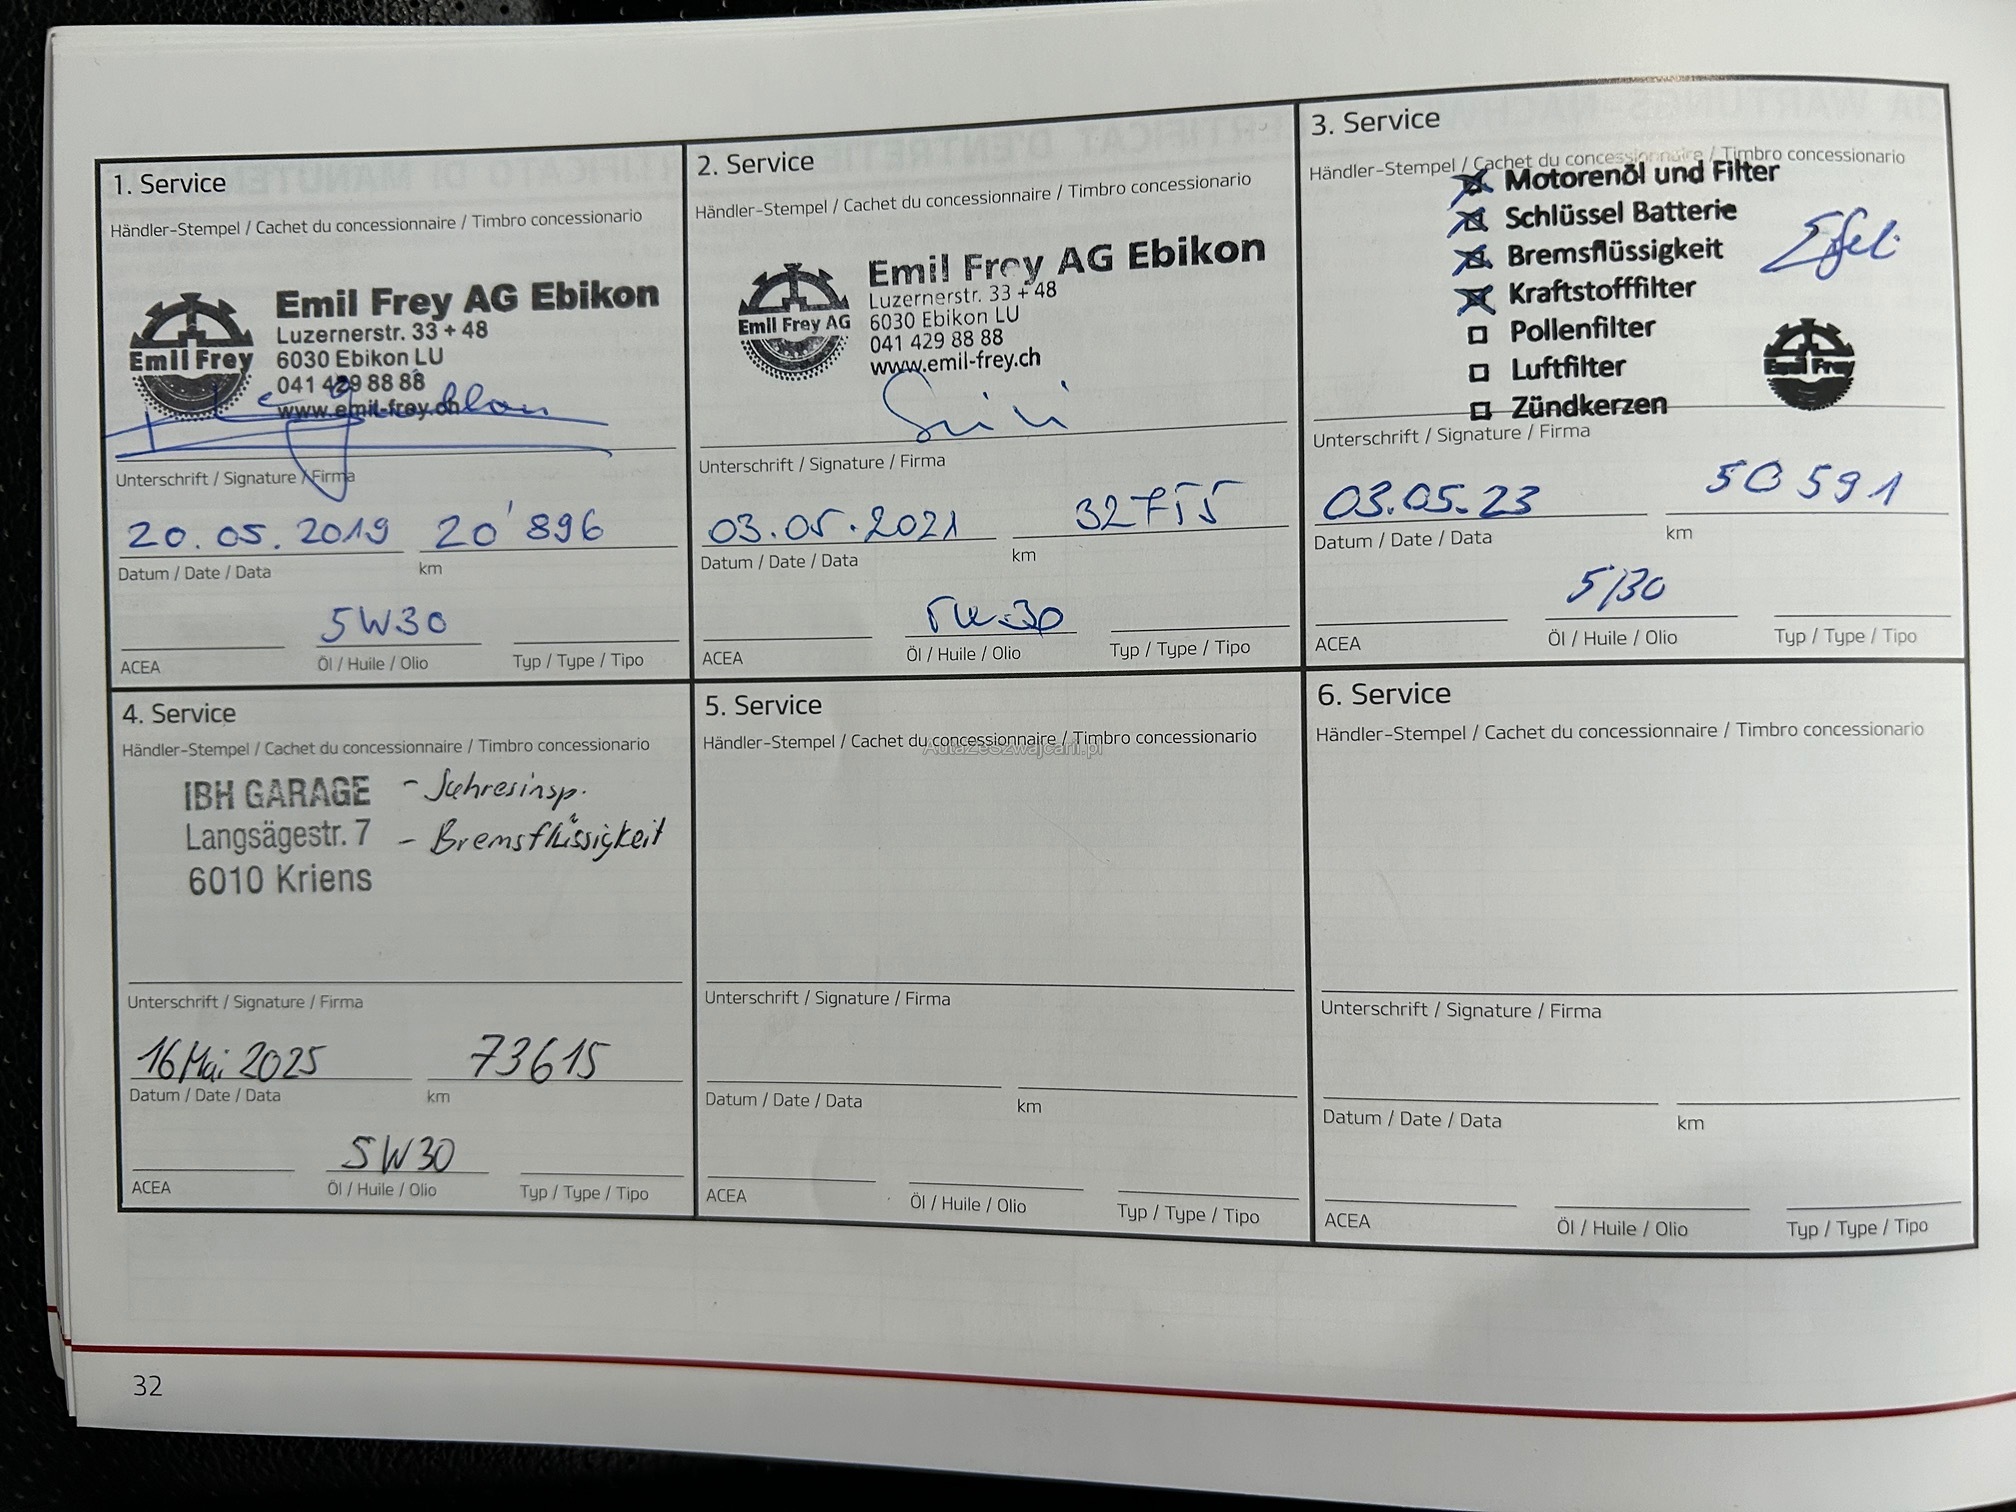 1. Service
Händler-Stempel / Cachet du concessionnaire / Timbro concessionario
Emil Frey AG Ebikon
Luzernerstr. 33 + 48
6030 Ebikon LU
041 429 88 88
www.emil-frey.ch
Emil Frey
Unterschrift / Signature / Firma
20.05.2019 20'896
Datum / Date / Data km
5W30
ACEA Öl / Huile / Olio Typ / Type / Tipo
2. Service
Händler-Stempel / Cachet du concessionnaire / Timbro concessionario
Emil Frey AG Ebikon
Luzernerstr. 33 + 48
6030 Ebikon LU
041 429 88 88
www.emil-frey.ch
Emil Frey AG
Unterschrift / Signature / Firma
03.05.2021 32755
Datum / Date / Data km
5W-30
ACEA Öl / Huile / Olio Typ / Type / Tipo
3. Service
Händler-Stempel / Cachet du concessionnaire / Timbro concessionario
Motorenöl und Filter
Schlüssel Batterie
Bremsflüssigkeit
Kraftstofffilter
Pollenfilter
Luftfilter
Zündkerzen
Emil Frey
Unterschrift / Signature / Firma
03.05.23 50591
Datum / Date / Data km
5/30
ACEA Öl / Huile / Olio Typ / Type / Tipo
4. Service
Händler-Stempel / Cachet du concessionnaire / Timbro concessionario
IBH GARAGE - Jahresinsp.
Langsägestr. 7 - Bremsflüssigkeit
6010 Kriens
Unterschrift / Signature / Firma
16 Mai 2025 73615
Datum / Date / Data km
5W30
ACEA Öl / Huile / Olio Typ / Type / Tipo
5. Service
Händler-Stempel / Cachet du concessionnaire / Timbro concessionario
AutaZeSzwajcarii.pl
Unterschrift / Signature / Firma
Datum / Date / Data km
ACEA Öl / Huile / Olio Typ / Type / Tipo
6. Service
Händler-Stempel / Cachet du concessionnaire / Timbro concessionario
Unterschrift / Signature / Firma
Datum / Date / Data km
ACEA Öl / Huile / Olio Typ / Type / Tipo
32